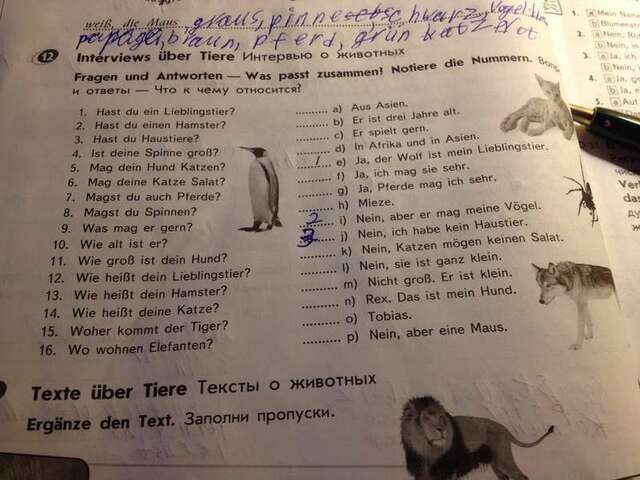 weiß, die Maus graus, pinne hwarz, Vogel
papagei, braun, pferd, grün katz rot
12 Interviews über Tiere Интервью о животных
Fragen und Antworten — Was passt zusammen? Notiere die Nummern.
и ответы — Что к чему относится?
1. Hast du ein Lieblingstier?
2. Hast du einen Hamster?
3. Hast du Haustiere?
4. Ist deine Spinne groß?
5. Mag dein Hund Katzen?
6. Mag deine Katze Salat?
7. Magst du auch Pferde?
8. Magst du Spinnen?
9. Was mag er gern?
10. Wie alt ist er?
11. Wie groß ist dein Hund?
12. Wie heißt dein Lieblingstier?
13. Wie heißt dein Hamster?
14. Wie heißt deine Katze?
15. Woher kommt der Tiger?
16. Wo wohnen Elefanten?
......... a) Aus Asien.
......... b) Er ist drei Jahre alt.
......... c) Er spielt gern.
......... d) In Afrika und in Asien.
1 e) Ja, der Wolf ist mein Lieblingstier.
......... f) Ja, ich mag sie sehr.
......... g) Ja, Pferde mag ich sehr.
......... h) Mieze.
2 i) Nein, aber er mag meine Vögel.
3 j) Nein, ich habe kein Haustier.
......... k) Nein, Katzen mögen keinen Salat.
......... l) Nein, sie ist ganz klein.
......... m) Nicht groß. Er ist klein.
......... n) Rex. Das ist mein Hund.
......... o) Tobias.
......... p) Nein, aber eine Maus.
Texte über Tiere Тексты о животных
Ergänze den Text. Заполни пропуски.
1. a Mein Na
b Blumenst
2. a Nein,
b Nein,
3. a Ja,
b Nein, i
4. a Ja, g
b Ja, e
5. a Auf